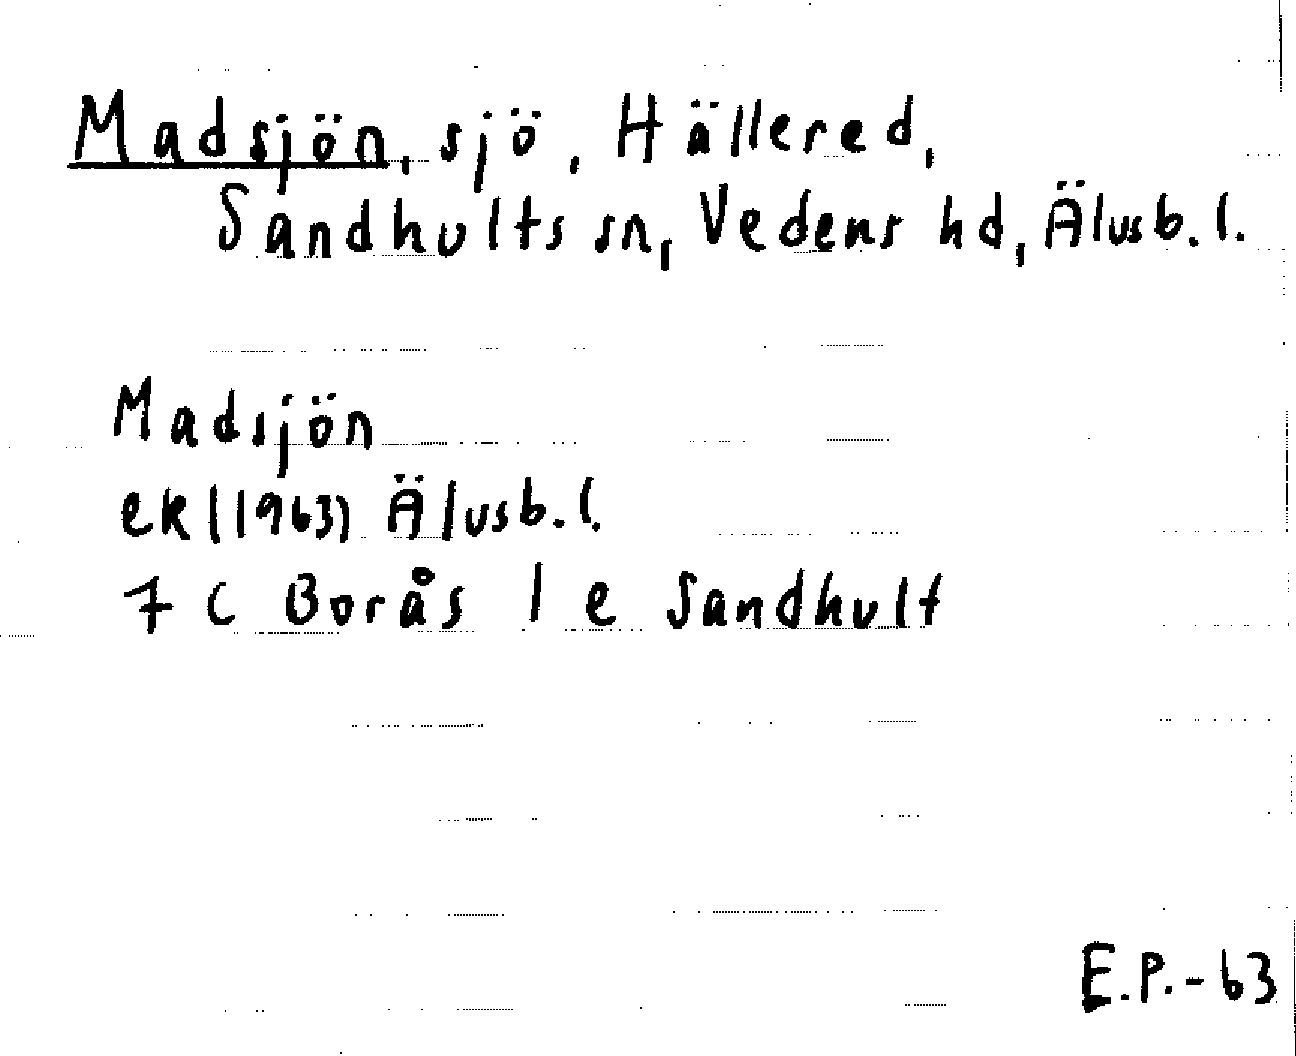 Madsjön, sjö, Hällered,
Sandhults sn, Vedens hd, Älvsb. l.
Madsjön
ek (1963) Älvsb. l.
7 C Borås 1 e Sandhult
E.P.-63